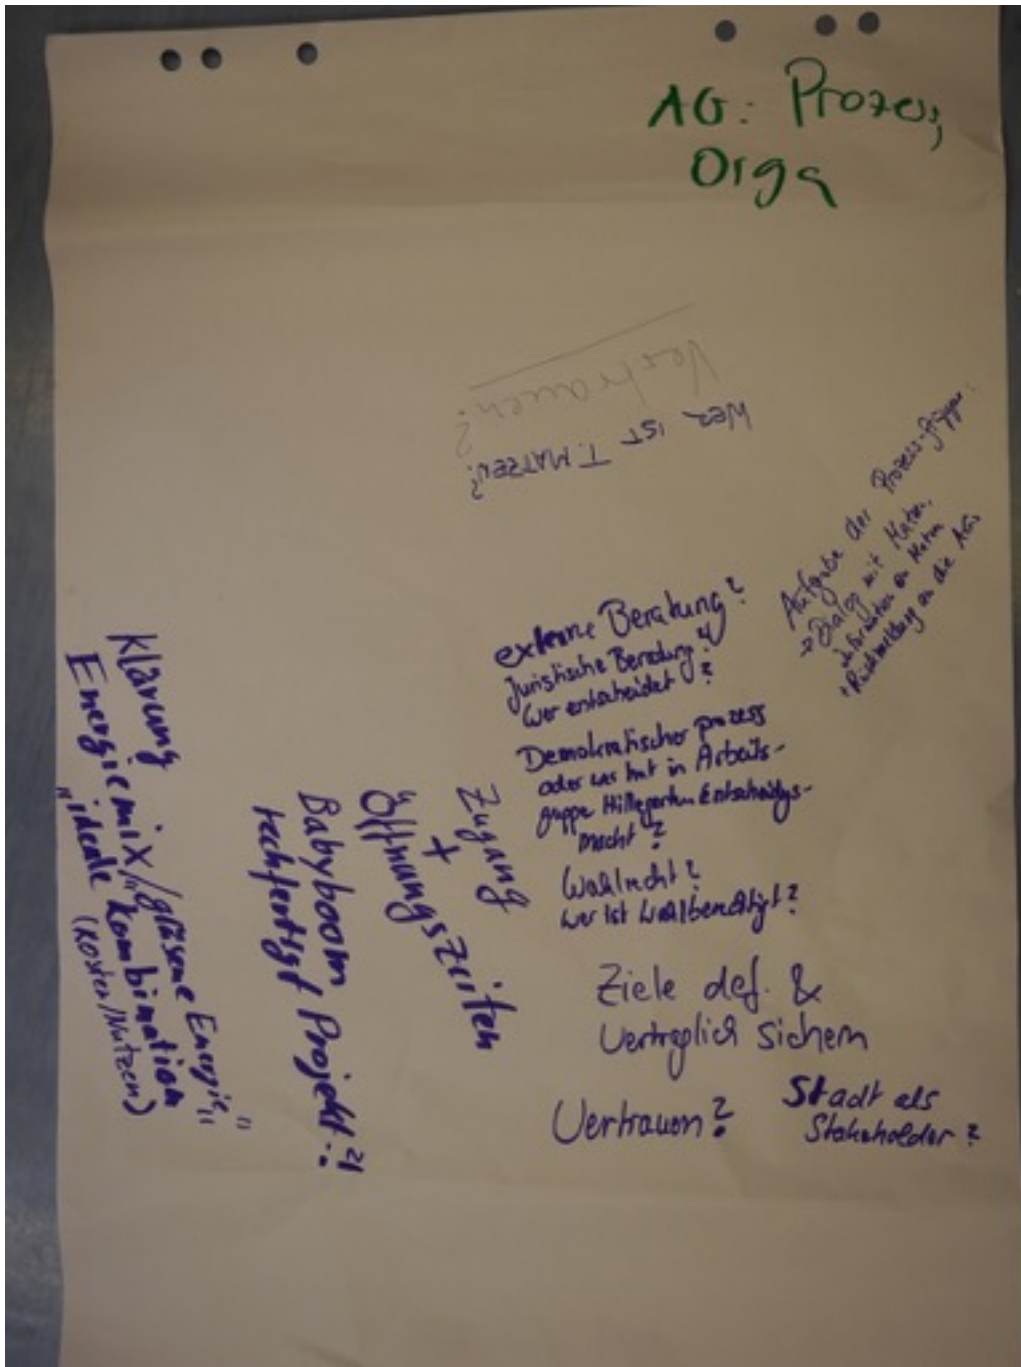 AG: Prozess,
Orga
Vertrauen?
WER IST T. MATZEN?
Aufgabe der Prozess-gruppe:
→ Dialog mit Matzen,
Information an Matzen
Rückmeldung an die AGs
externe Beratung?
Juristische Beratung?
Wer entscheidet?
Demokratischer prozess
oder wer hat in Arbeits-
gruppe Entscheidungs-
macht?
Wahlrecht?
wer ist wahlberechtigt?
Ziele def. &
vertraglich sichern
Vertrauen?
Stadt als
Stakeholder?
Zugang
+
Öffnungszeiten
Babyboom
rechfertigt Projekt?!
Klärung
Energiemix/„gläserne Energie"
„ideale Kombination"
(Kosten/Nutzen)